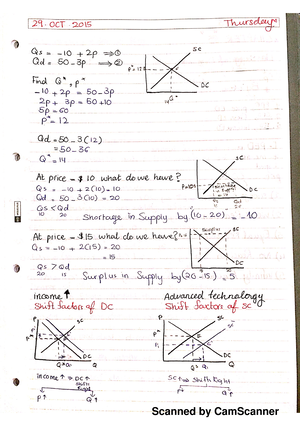 29. OCT 2015 Thursday
Qs = -10 + 2p → ①
Qd = 50 - 3p → ②
SC
DC
Find Q*, p*
-10 + 2p = 50 - 3p
2p + 3p = 50 + 10
5p = 60
p* = 12
Qd = 50 - 3(12)
= 50 - 36
Q* = 14
At price = $10 what do we have?
Qs = -10 + 2(10) = 10
Qd = 50 - 3(10) = 20
Qs < Qd
10 20
Shortage in Supply by (10-20) = -10
SC
DC
At price = $15 what do we have?
Qs = -10 + 2(15) = 20
= 15
Qs > Qd
20 15
Surplus in Supply by (20-15) = 5
Surplus
SC
DC
income ↑
Shift factors of DC
Advanced technology
Shift factors of SC
P
SC
DC
Q
P
SC
DC
Q
income ↑ ⇒ DC ↑
Shift
Right
P↑ Q↑
SC ↑ ⇒ Shift Right
Scanned by CamScanner